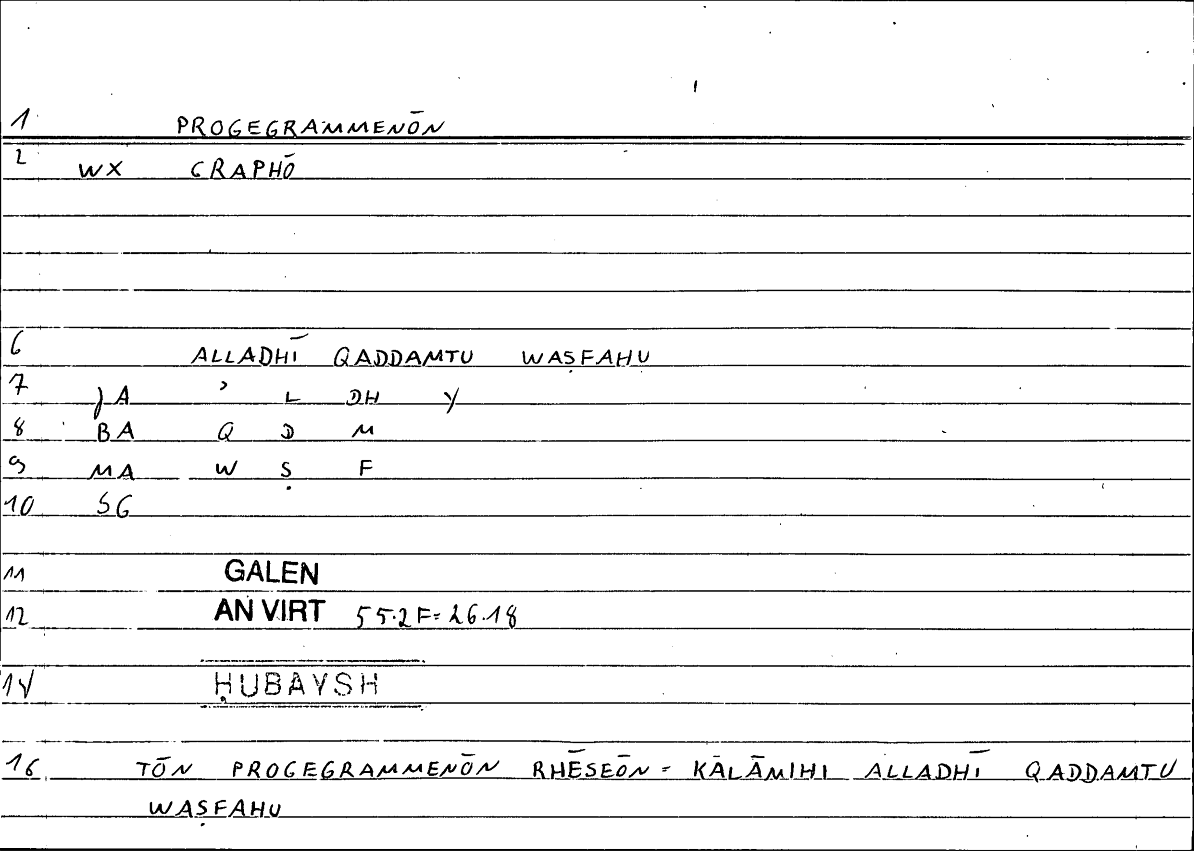 1 PROGEGRAMMENŌN
2 WX GRAPHŌ
6 ALLADHĪ QADDAMTU WAṢFAHU
7 JA ʾ L DH Y
8 BA Q D M
9 MA W Ṣ F
10 SG
11 GALEN
12 AN VIRT 55.2F=26.18
14 ḤUBAYSH
16 TŌN PROGEGRAMMENŌN RHĒSEŌN = KĀLĀMIHI ALLADHĪ QADDAMTU
WAṢFAHU